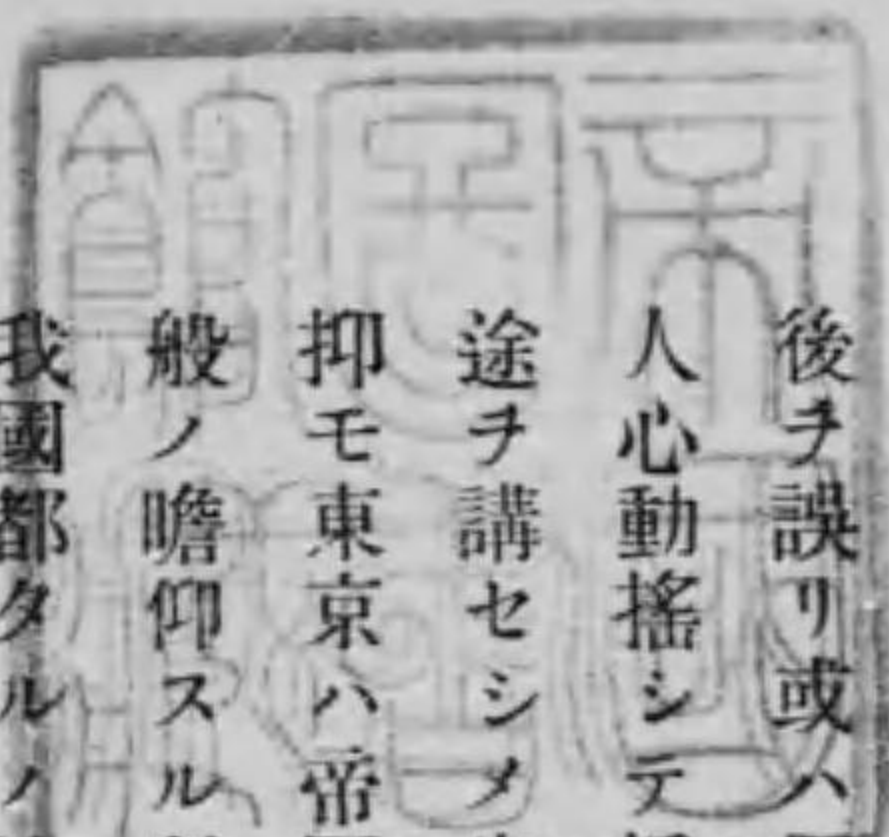 後ヲ誤リ或ハ
人心動搖シテ
途ヲ講セシメ
抑モ東京ハ帝
般ノ瞻仰スル
我國都タルノ